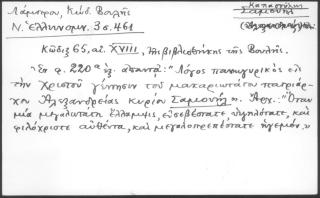 Λάμπρου, Κώδ. Βουλῆς
Ν. Ἑλληνομν. 3 σ. 461
Καπασούλης
Σαμουήλ
Κώδιξ 65, αἰ. XVIII, τῆς βιβλιοθήκης τῆς Βουλῆς.
Ἐν φ. 220α ἑξ. ἀπαντᾷ: "Λόγος πανηγυρικὸς εἰς
τὴν Χριστοῦ γέννησιν τοῦ μακαριωτάτου πατριάρ-
χου Ἀλεξανδρείας κυρίου Σαμουὴλ π. Ἀρχ.: "Ὅταν
μία μεγαλωτάτη ἔλλαμψις, εὐσεβέστατε ὑψηλότατε, καὶ
φιλόχριστε αὐθέντα, καὶ μεγαλοπρεπέστατε ἡγεμὼν,»